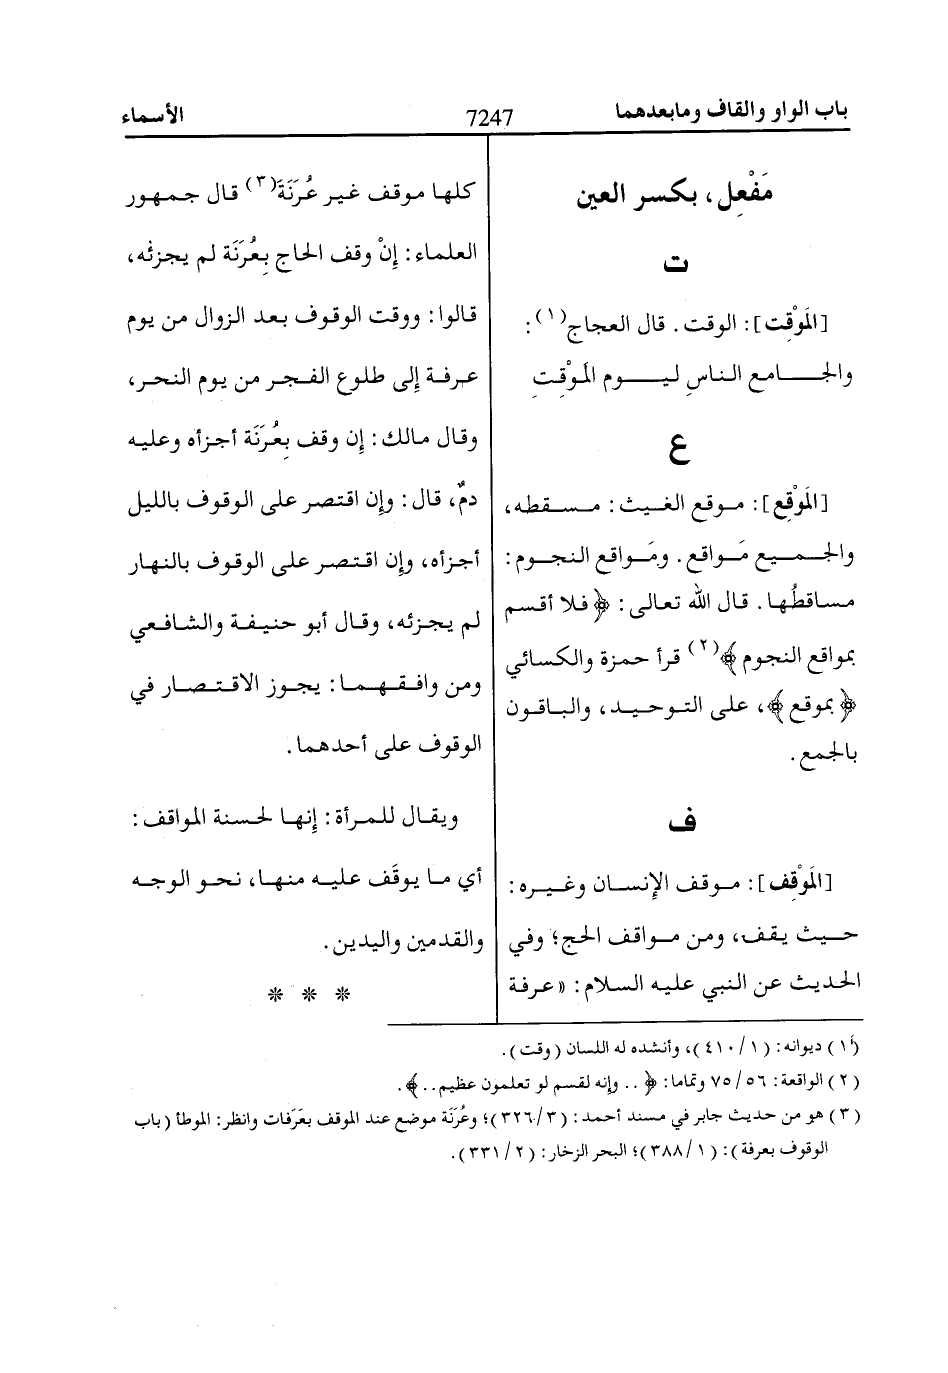 باب الواو والقاف ومابعدهما 7247 الأسماء
مَفْعِل، بكسر العين
ت
[المَوْقِت]: الوقت. قال العجاج(١):
والجامع الناسِ ليوم المَوْقِتِ
ع
[المَوْقِع]: موقع الغيث: مسقطه،
والجميع مَواقع. ومَواقع النجوم:
مساقطُها. قال الله تعالى: ﴿فلا أقسم
بمواقع النجوم﴾(٢) قرأ حمزة والكسائي
﴿بموقع﴾، على التوحيد، والباقون
بالجمع.
ف
[المَوْقِف]: موقف الإنسان وغيره:
حيث يقف، ومن مواقف الحج؛ وفي
الحديث عن النبي عليه السلام: «عرفة
كلها موقف غير عُرَنَة(٣) قال جمهور
العلماء: إنْ وقف الحاج بِعُرَنَة لم يجزئه،
قالوا: ووقت الوقوف بعد الزوال من يوم
عرفة إلى طلوع الفجر من يوم النحر،
وقال مالك: إن وقف بِعُرَنَة أجزأه وعليه
دمٌ، قال: وإن اقتصر على الوقوف بالليل
أجزأه، وإن اقتصر على الوقوف بالنهار
لم يجزئه، وقال أبو حنيفة والشافعي
ومن وافقهما: يجوز الاقتصار في
الوقوف على أحدهما.
ويقال للمرأة: إنها لحسنة المواقف:
أي ما يوقَف عليه منها، نحو الوجه
والقدمين واليدين.
* * *
(١) ديوانه: (١/٤١٠)، وأنشده له اللسان (وقت).
(٢) الواقعة: ٥٦/٧٥ وتمامها: ﴿.. وإنه لقسم لو تعلمون عظيم..﴾.
(٣) هو من حديث جابر في مسند أحمد: (٣/٣٢٦)؛ وعُرَنَة موضع عند الموقف بعَرَفات وانظر: الموطأ (باب
الوقوف بعرفة): (١/٣٨٨)؛ البحر الزخار: (٢/٣٣١).